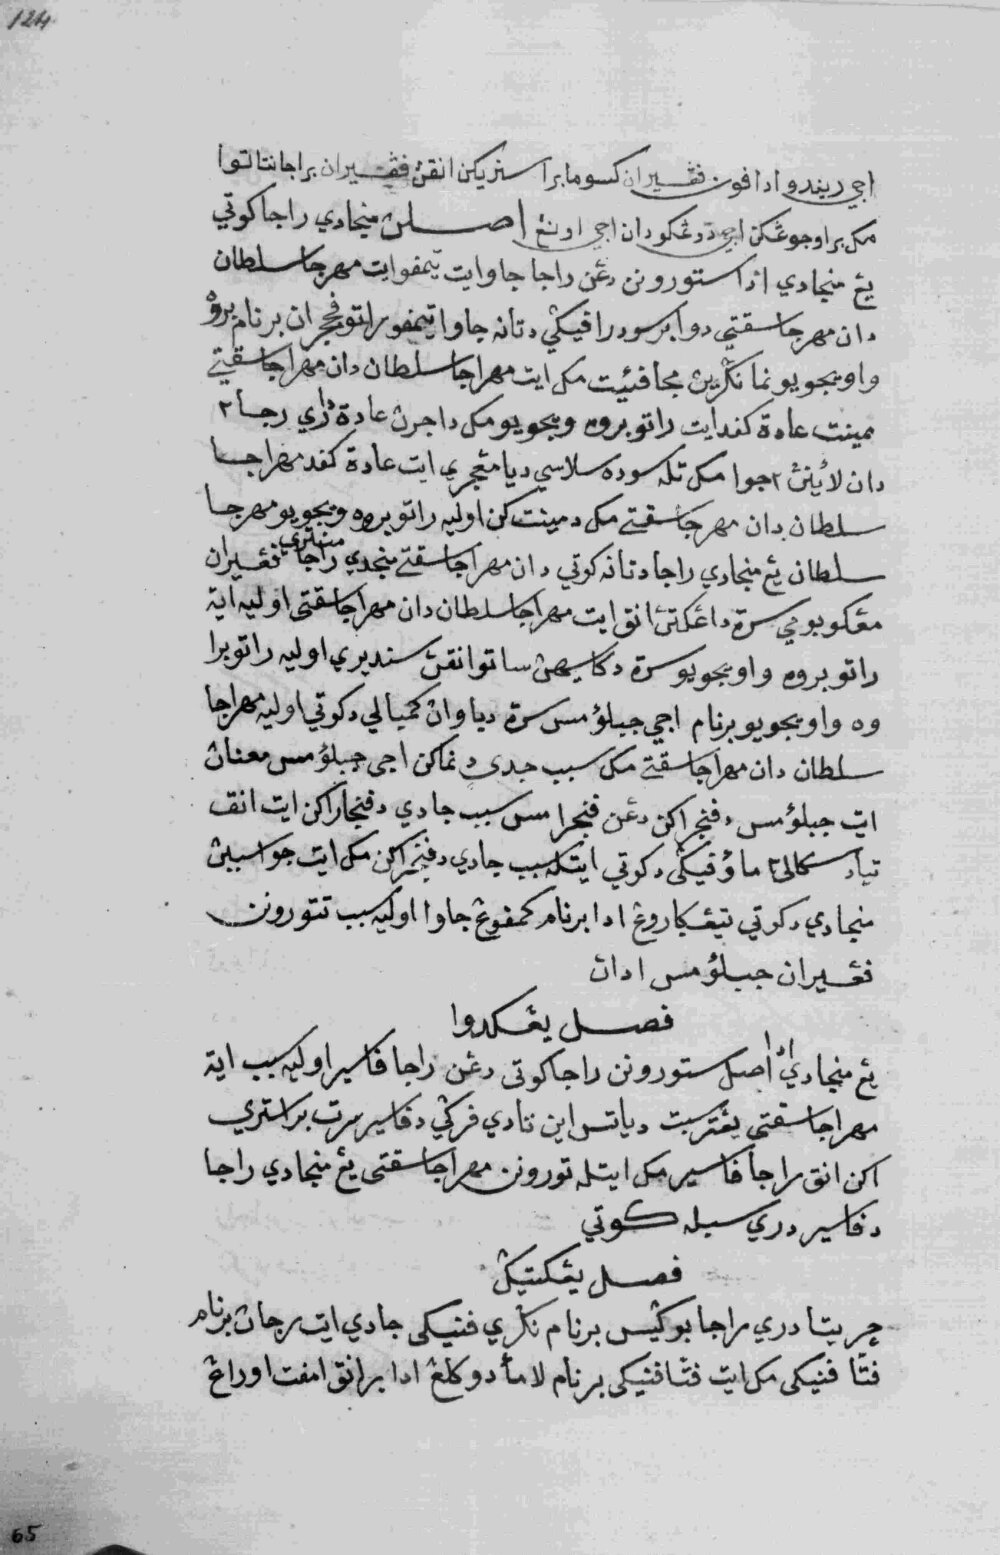 124
اجي ريندو ادافون ڤڠيران كسوما برا ستريكن انقڽ ڤڠيران براجانتا لتوا
مك براوجوڠكن اجي تدڠكو دان اجي اونڠ اصلڽ منجادي راجا كوتي
يڠ منجادي اد ستورونن دڠن راجا جاوا ايت تيمفو ايت مهرجا سلطان
دان مهرجا سقتي دوا برسودرا فيڬي دتانه جاوا تيمفو راتو برنام بروه
واويجويو نما نڬرين مجافئيت مك ايت مهراجا سلطان دان مهراجا سقتي
مينت عادة كفد ايت راتو بروه ويجويو مك داجرن عادة دري رجا٢
دان لائينڽ٢ جوا مك تله سوده سلاسي ديا مڠجري ايت عادة كفد مهراجا
سلطان دان مهرجا سقتي مك دمينت كن اوليه راتو بروه ويجويو مهرجا
سلطان يڠ منجادي راجا دتانه كوتي دان مهراجا سقتي منجدي راجا منتري ڤڠيران
مڠكوبومي سرة داڠكتڽ انق ايت مهراجا سلطان دان مهراجا سقتي اوليه اية
راتو بروه واويجويو سرة دكاسيهن ساتو انقڽ سنديري اوليه راتو برا
وه واويجويو برنام اجي جبلوٴ مس سرة دياوان كمبالي دكوتي اوليه مهراجا
سلطان دان مهراجا سقتي مك سبب جدي دنماكن اجي جبلوٴ مس معنان
ايت جبلوٴ مس دفنجراكن دڠن فنجرا مس سبب جادي دفنجاراكن ايت انق
تياد سكالي٢ ماوٴ فيڬي دكوتي ايتله سبب جادي دفنجراكن مك ايت جوا سببڽ
منجادي دكوتي تيڠڬاروڠ ادا برنام كمفوڠ جاوا اوليه سبب تتورونن
ڤڠيران جبلوٴ مس ادان
فصل يڠكدوا
يڠ منجادي اد اصل ستورونن راجا كوتي دڠن راجا فاسير اوليه سبب اية
مهراجا سقتي يڠترسبت دياتس اين تادي فركي دفاسير سرت براستري
اكن انق راجا فاسير مك ايتله تورونن مهراجا سقتي يڠ منجادي راجا
دفاسير دري سبله كوتي
فصل يڠكتيڬ
چريتا دري راجا بوكيس برنام نڬري فنيكي جادي ايت رجان برنام
فتا فنيكي مك ايت فتا فنيكي برنام لامأدوكلڠ ادا برانق امفت اوراڠ
65